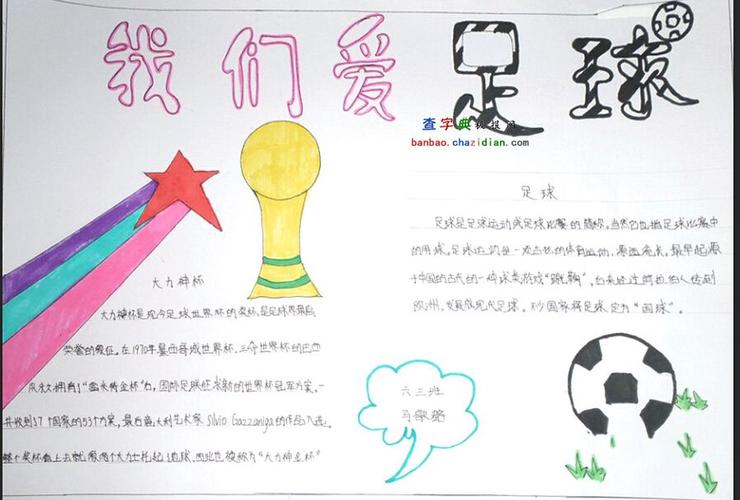 我们爱足球
查字典板报网
banbao.chazidian.com
足球
足球是足球运动或足球比赛的简称,当然它也指足球比赛中
的用球,足球运动是一项古老的体育运动,源远流长,最早起源
于中国的古代的一种球类游戏“蹴鞠”,后来经过阿拉伯人传到
欧洲,发展成现代足球。不少国家将足球定为“国球”。
大力神杯
大力神杯是现今足球世界杯的奖杯,是足球界最高
荣誉的象征。在1970年墨西哥城世界杯,三夺世界杯的巴西
队永久拥有了“雷米特金杯”后,国际足联征求新的世界杯冠军方案,一
共收到17个国家的53个方案,最后意大利艺术家Silvio Gazzaniga的作品入选。
整个奖杯看上去就像两个大力士托起了地球,因此也被称为“大力神金杯”
六三班
马